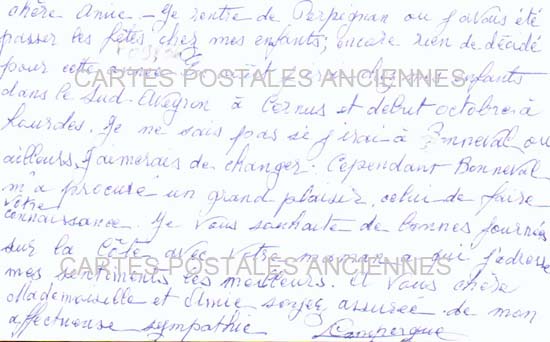 chère Amie – Je rentre de Perpignan ou j'avais été
passer les fêtes chez mes enfants; encore rien de décidé
pour cette année. En août je mes enfants
CARTES POSTALES ANCIENNES
dans le Sud-Aveyron à Cornus et début octobre à
Lourdes. Je ne sais pas si j'irai à Bonneval ou
ailleurs, j'aimerais de changer. Cependant Bonneval
m'a procuré un grand plaisir, celui de faire
votre
connaissance. Je vous souhaite de bonnes journées
sur la Côte avec votre maman à qui j'adresse
CARTES POSTALES ANCIENNES
mes sentiments les meilleurs. Et vous chère
Mademoiselle et Amie soyez assurée de mon
affectueuse sympathie